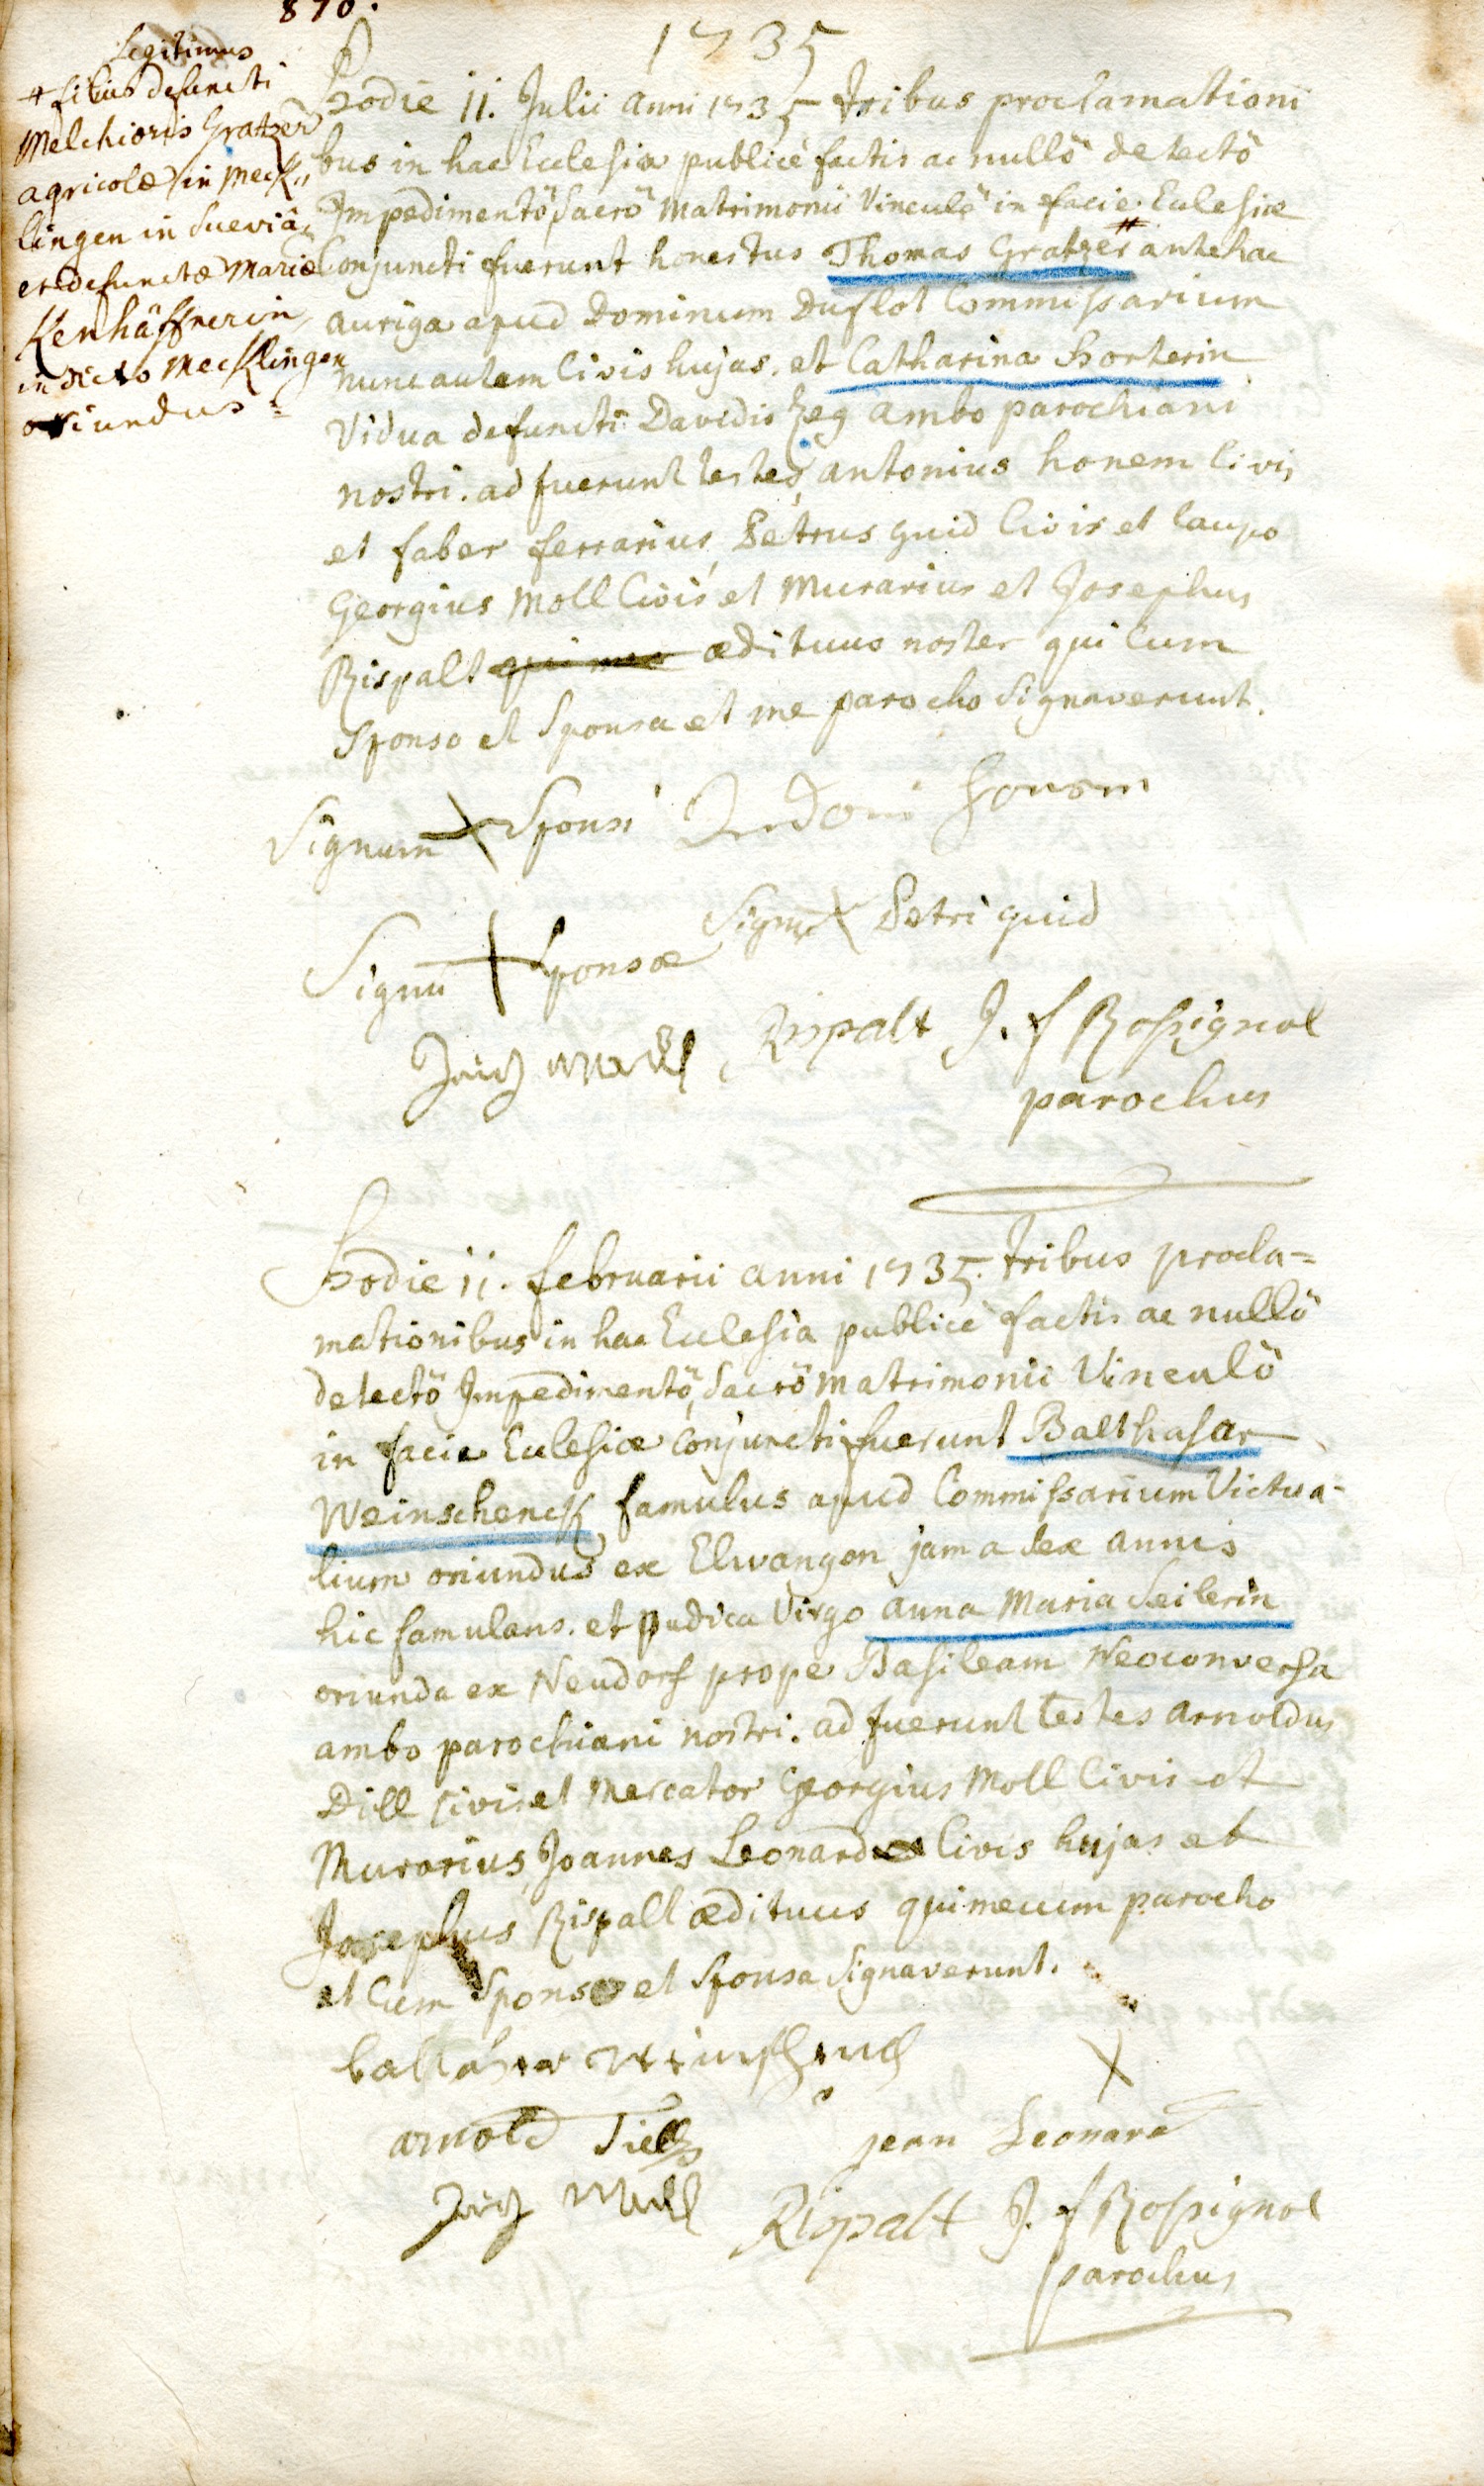 870.
1735
Legitimus
# filius defuncti
Melchioris Gratzer
agricolæ in Meck„
lingen in Sueviâ,
et defunctæ Mariæ
Kenhäffnerin,
in dicto Mecklingen
oriundus =
Hodie 11. Julii anni 1735 tribus proclamationi
bus in hac Ecclesia publicè factis ac nullô detectô
Impedimentô sacrô Matrimonii Vinculô in facie Ecclesiæ
Conjuncti fuerunt honestus Thomas Gratzer # antehac
auriga apud Dominum Duflot Commissarium
nunc autem Civis hujas. et Catharina Horterin
Vidua defuncti Davidis Heg ambo parochiani
nostri. ad fuerunt testes, antonius honem Civis
et faber ferrarius, Petrus quid Civis et Caupo
Georgius Moll Civis et Murarius et Josephus
Rispalt qui me ædituus noster qui Cum
Sponso et Sponsa et me parocho Signaverunt.
Signum X Sponsi Andoni honem
Signū X Sponsæ Signū X Petri quid
Moll Rispalt J. f Rossignol
parochus
Hodie 11. februarii anni 1735. tribus procla=
mationibus in hac Ecclesia publicè factis ac nullô
detectô Impedimentô, Sacrô Matrimonii Vinculô
in facie Ecclesiæ Conjuncti fuerunt Balthasar
Weinschenck famulus apud Commissarium Victua-
lium oriundus ex Elwangen jam a sex annis
hic famulans. et pudica Virgo anna Maria Seilerin
oriunda ex Neudorf prope Basileam Neoconversa
ambo parochiani nostri. ad fuerunt testes arnoldus
Dill civis et Mercator Georgius Moll Civis et
Murarius, Joannes Leonard Civis hujas et
Josephus Rispalt ædituus qui mecum parocho
et Cum Sponso et Sponsa Signaverunt.
baltasar weinschenck X
arnold Tiell jean Leonard
Moll Rispalt J. f Rossignol
parochus